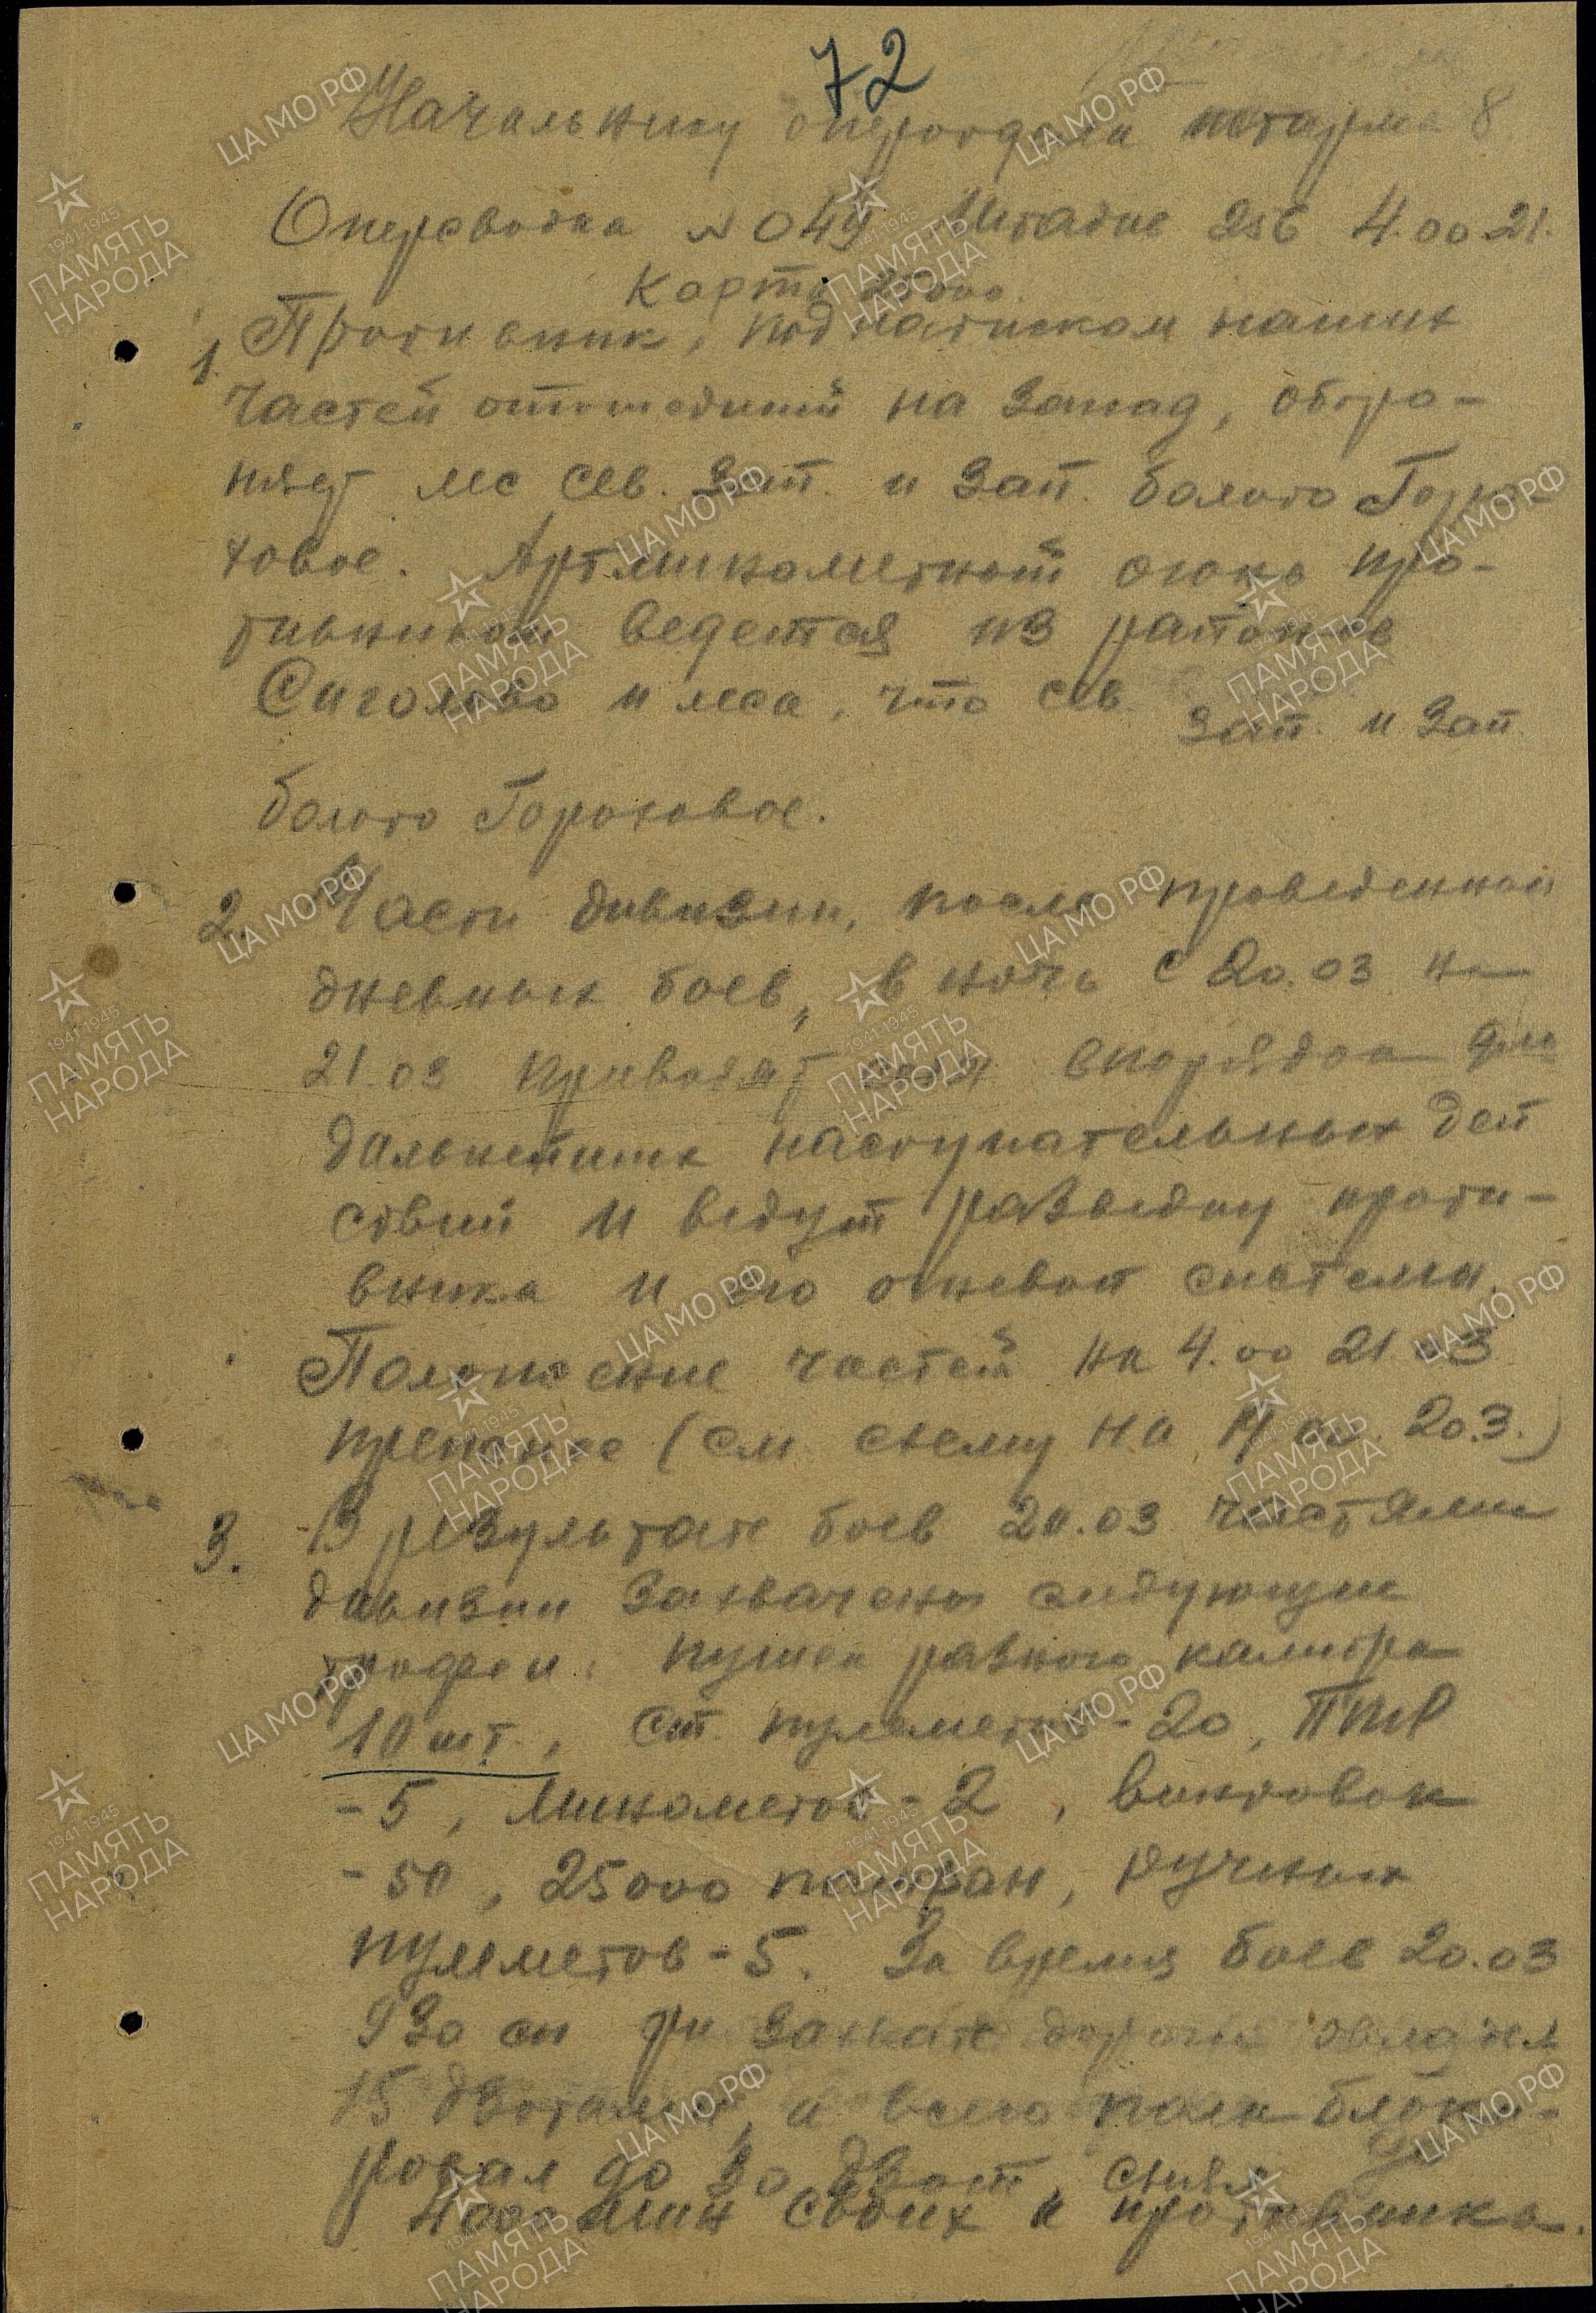 72
Начальнику оперотдела штарма 8
Оперсводка № 049 Штадив 256 4.00 21.
Карта 25000.
1. Противник, под натиском наших
частей отошедший на запад, оборо-
няет лес сев. зап. и зап. болото Горо-
ховое. Артминометный огонь про-
тивником ведется из районов
Сиголово и леса, что сев. зап. и зап.
болото Гороховое.
2. Части дивизии, после проведенных
дневных боев, в ночь с 20.03 на
21.03 приводят себя в порядок для
дальнейших наступательных дей
ствий и ведут разведку проти-
вника и его огневой системы.
Положение частей на 4.00 21.03
прежнее (см. схему на 20.3.)
3. В результате боев 20.03 частями
дивизии захвачены следующие
трофеи: пушек разного калибра
10 шт., ст. пулеметов - 20, ПТР
- 5, минометов - 2, винтовок
- 50, 25000 патрон, ручных
пулеметов - 5. За время боев 20.03
930 сп при захвате дороги овладел
15 дзотами, а всего полк блоки-
ровал до 30 дзот, снял
4000 мин своих и противника.
ЦА МО РФ
1941-1945
ПАМЯТЬ
НАРОДА